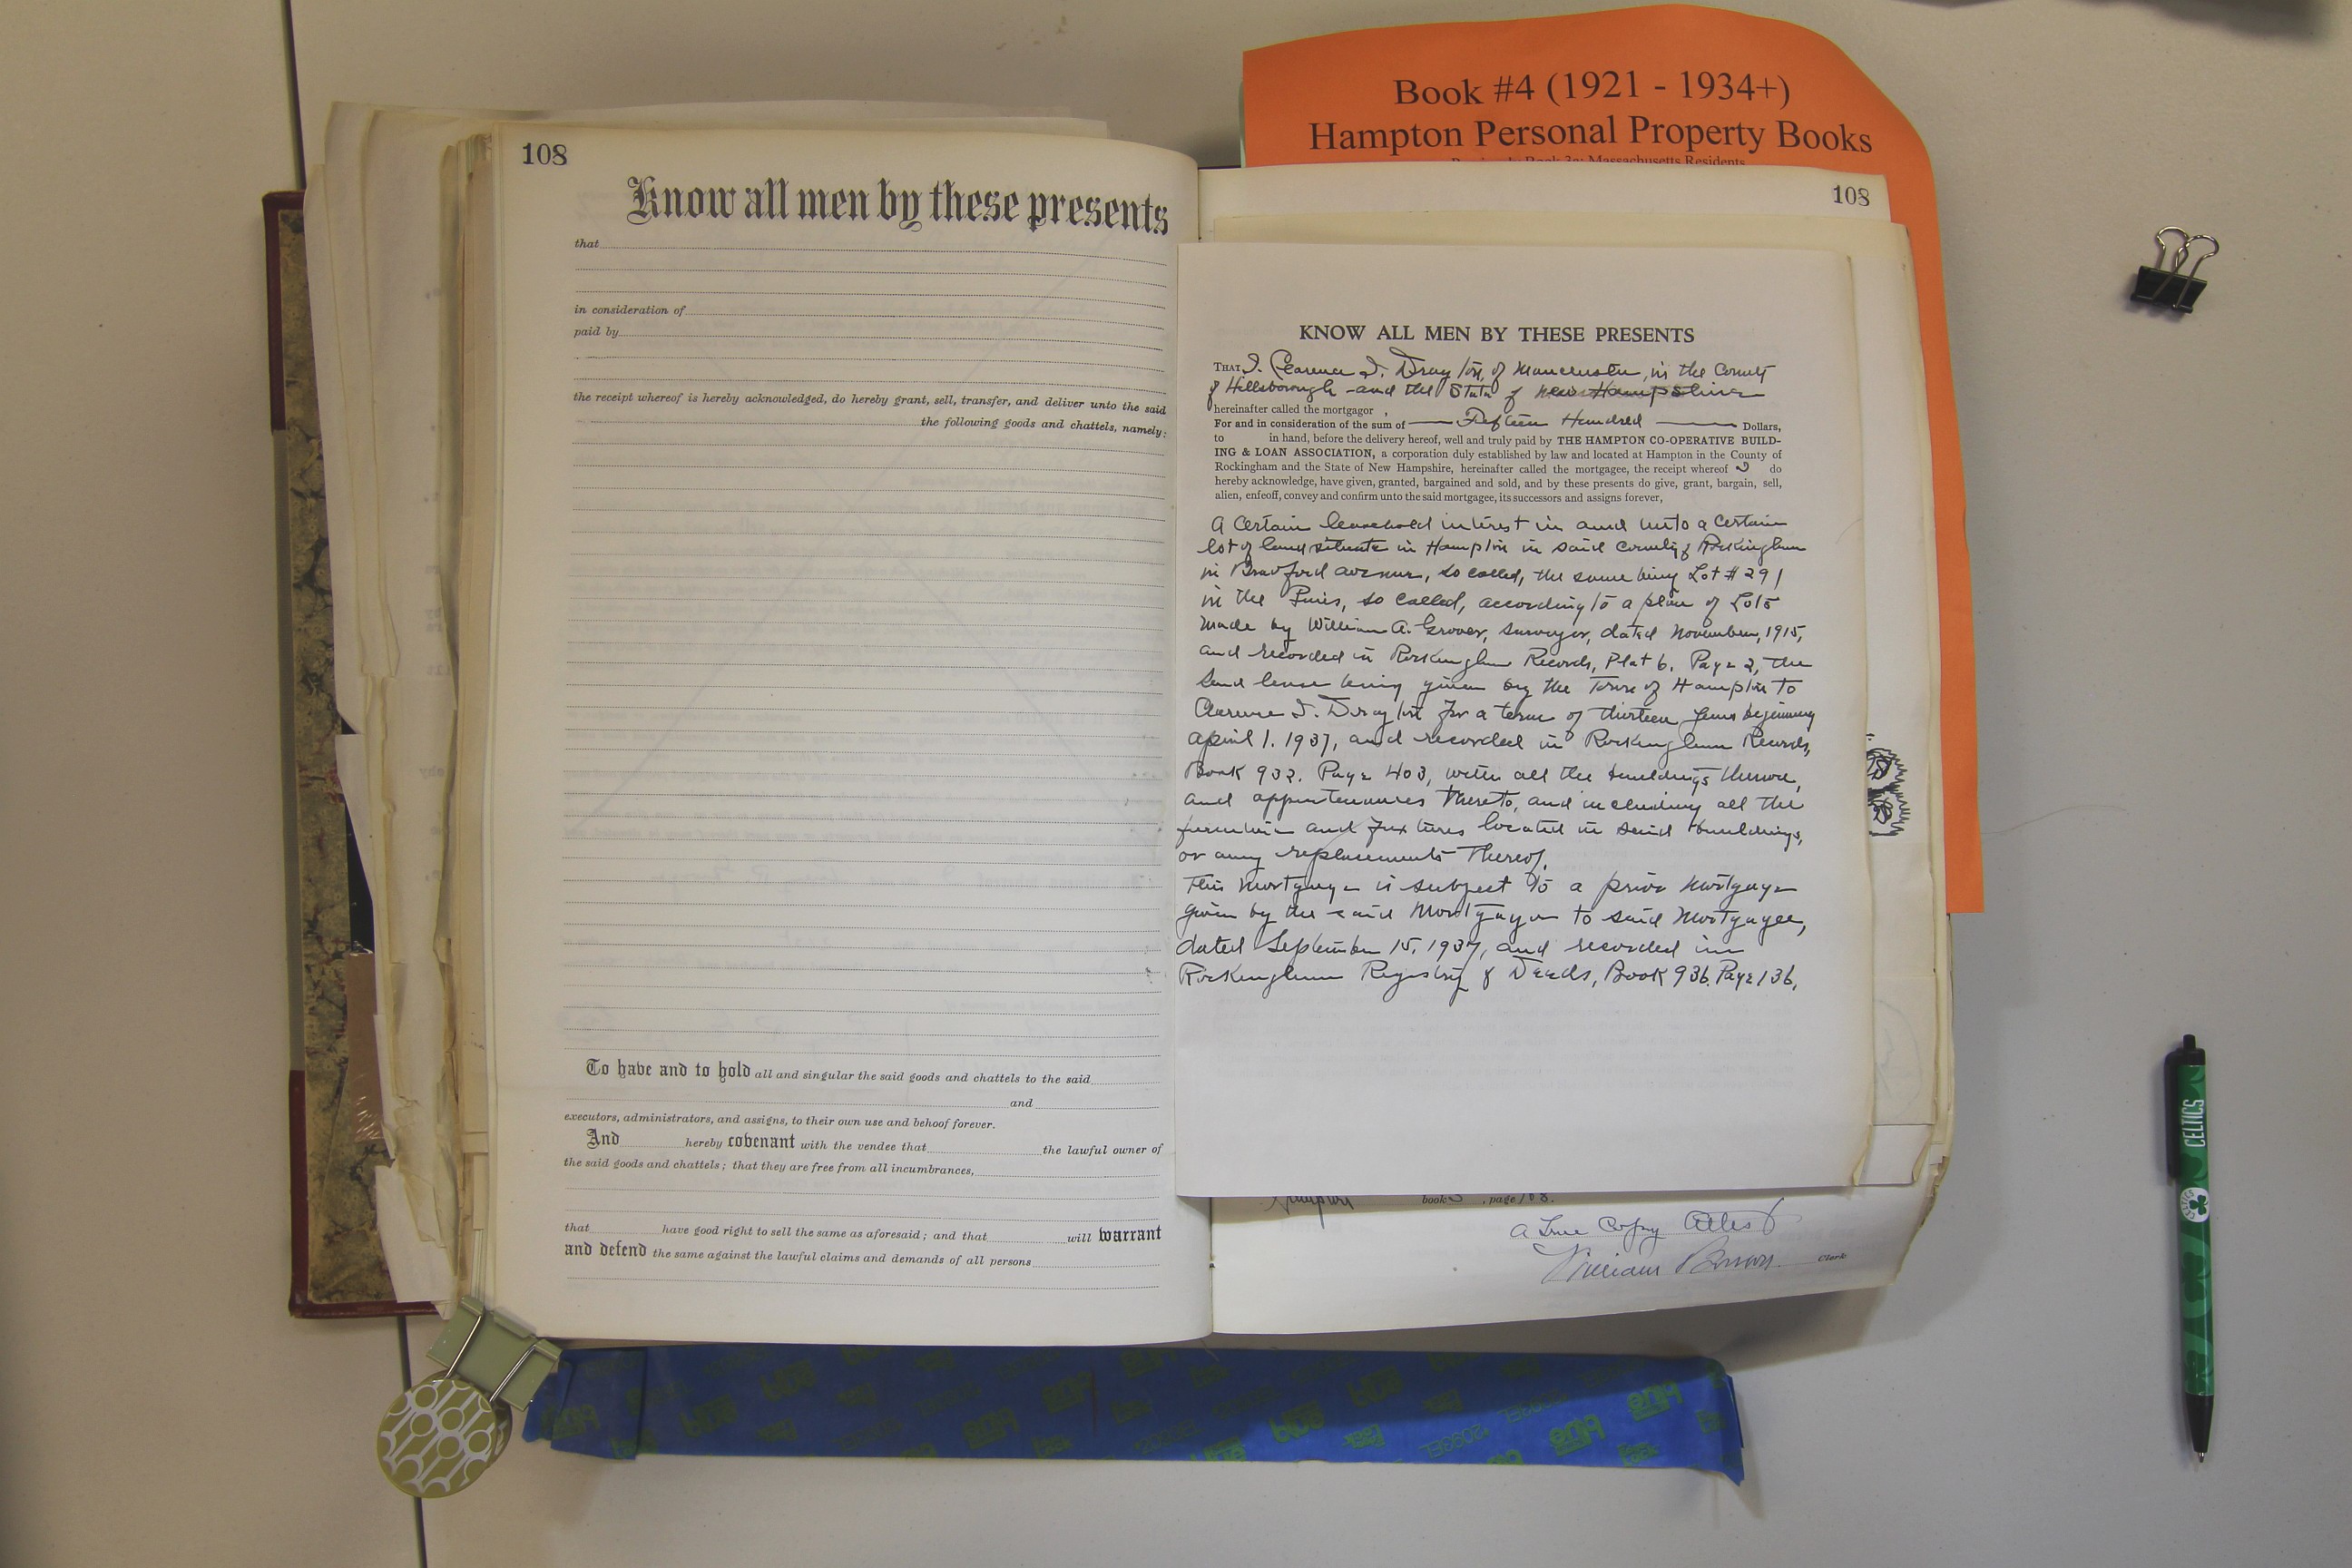 Book #4 (1921 - 1934+)
Hampton Personal Property Books
108
Know all men by these presents
that
in consideration of
paid by
the receipt whereof is hereby acknowledged, do hereby grant, sell, transfer, and deliver unto the said
the following goods and chattels, namely:
To have and to hold all and singular the said goods and chattels to the said
and
executors, administrators, and assigns, to their own use and behoof forever.
And hereby covenant with the vendee that the lawful owner of
the said goods and chattels; that they are free from all incumbrances,
that have good right to sell the same as aforesaid; and that will warrant
and defend the same against the lawful claims and demands of all persons
108
KNOW ALL MEN BY THESE PRESENTS
THAT I. Clarence I. Drayton, of Manchester, in the County
of Hillsborough and the State of New Hampshire
hereinafter called the mortgagor ,
For and in consideration of the sum of — Fifteen Hundred — Dollars,
to in hand, before the delivery hereof, well and truly paid by THE HAMPTON CO-OPERATIVE BUILD-
ING & LOAN ASSOCIATION, a corporation duly established by law and located at Hampton in the County of
Rockingham and the State of New Hampshire, hereinafter called the mortgagee, the receipt whereof I do
hereby acknowledge, have given, granted, bargained and sold, and by these presents do give, grant, bargain, sell,
alien, enfeoff, convey and confirm unto the said mortgagee, its successors and assigns forever,
A certain leasehold interest in and unto a certain
lot of land situate in Hampton in said County of Rockingham
in Bradford avenue, so called, the same being Lot # 291
in the Pines, so called, according to a plan of Lots
made by William A. Grover, surveyor, dated November, 1915,
and recorded in Rockingham Records, Plat 6. Page 2, the
said lease being given by the Town of Hampton to
Clarence I. Drayton for a term of thirteen years beginning
april 1. 1937, and recorded in Rockingham Records,
Book 932. Page 403, with all the buildings thereon,
and appurtenances thereto, and including all the
furniture and fixtures located in said buildings,
or any replacements thereof.
This mortgage is subject to a prior mortgage
given by the said Mortgagor to said Mortgagee,
dated September 15, 1937, and recorded in
Rockingham Registry of Deeds, Book 936. Page 136,
Hampton book 3 , page 108.
A True Copy Attest
William Brown Clerk
CELTICS
CELTICS